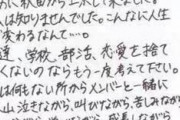 は知りませんでした。こんなに人生
変わるなんて…。
達、学校、部活、恋愛を捨て
くないのならもう一度考えて下さい。
は何もない所からメンバーと一緒に
山泣きながら、叫びながら、苦しみなが
成長しながら